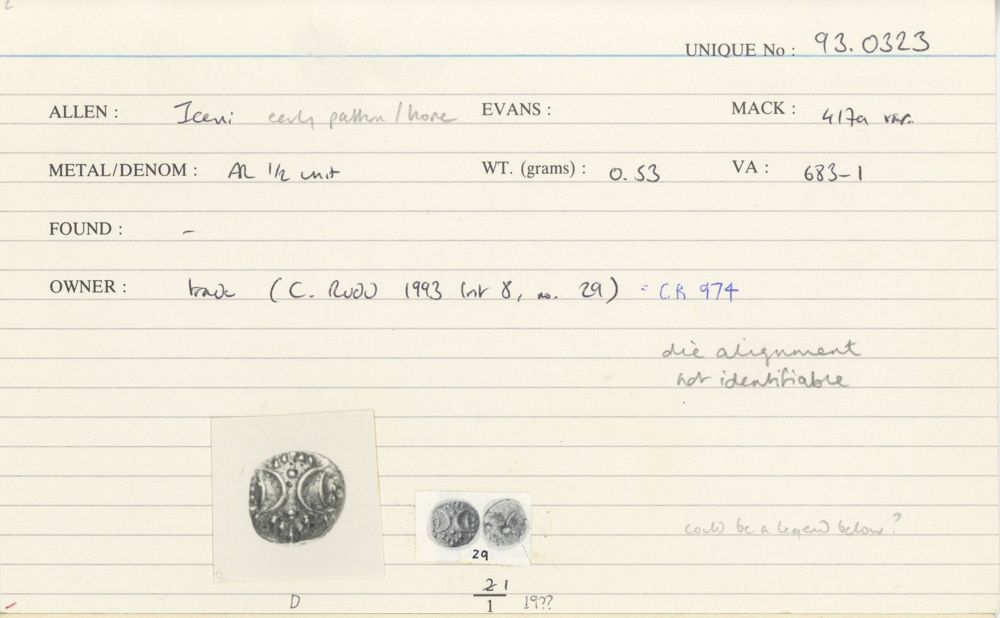 UNIQUE No : 93.0323
ALLEN : Iceni early pattern/horse EVANS : MACK : 417a var.
METAL/DENOM : AR 1/2 unit WT. (grams) : 0.53 VA : 683-1
FOUND : -
OWNER : trade (C. RUDD 1993 list 8, no. 29) = CR 974
die alignment
not identifiable
could be a legend below?
29
21
D 1 19??